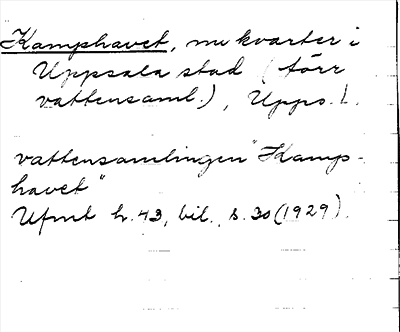 Kamphavet, nu kvarter i
Uppsala stad (förr
vattensaml.), Upps. l.
vattensamlingen "Kamp-
havet"
Ufmt h. 43, bil., s. 30 (1929).